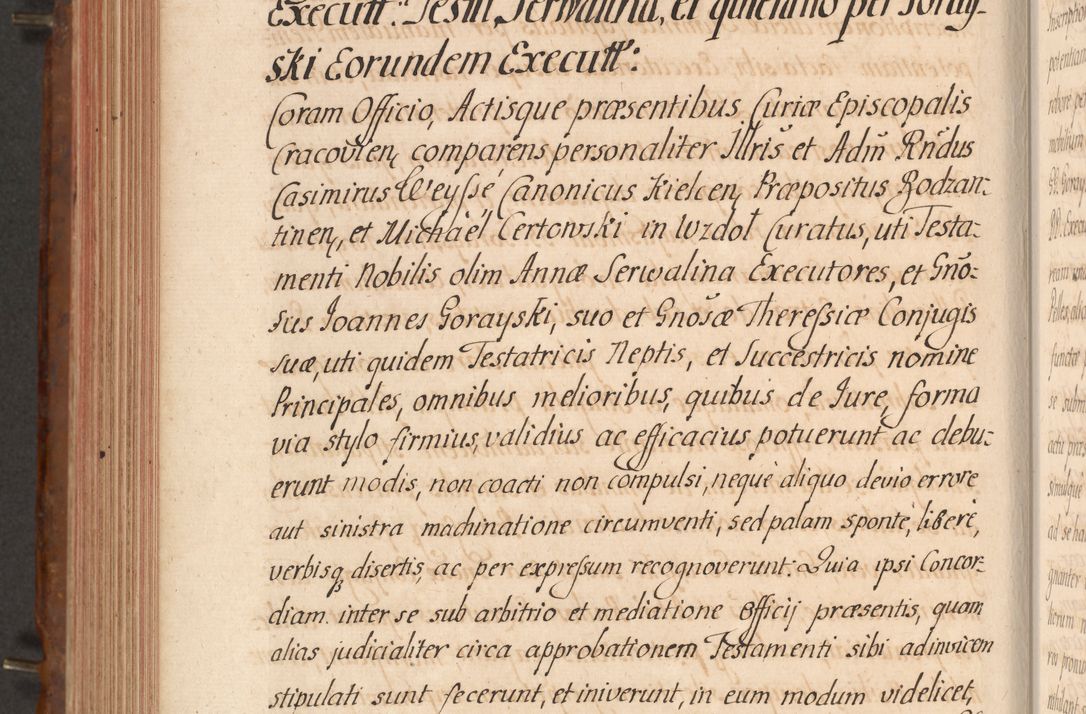 Executt: Testti Serwalina, et quietatio per Goray-
ski Eorundem Executt:
Coram Officio, Actisque præsentibus Curiæ Episcopalis
Cracovien, comparens personaliter Illris et Adm̃ Rñdus
Casimirus Weyssé Canonicus Kielcen, Præpositus Bodzan-
tinen, et Michaël Certowski in Wzdoł Curatus, uti Testa-
menti Nobilis olim Annæ Serwalina Executores, et Gño-
sus Joannes Gorayski, suo et Gnosæ Theressiæ Conjugis
suæ, uti quidem Testatricis Neptis, et Succestricis nomine
Principales, omnibus melioribus, quibus de Jure, forma
via stylo firmius, validius ac efficacius potuerunt ac debu-
erunt modis, non coacti non compulsi, neque aliquo devio errore
aut sinistra machinatione circumventi, sed palam sponte, liberè,
verbisq disertis, ac per expressum recognoverunt: Quia ipsi Concor-
diam inter se sub arbitrio et mediatione Officij præsentis, quam
alias judicialiter circa approbationem Testamenti sibi adinvicem
stipulati sunt fecerunt, et iniverunt, in eum modum videlicet,